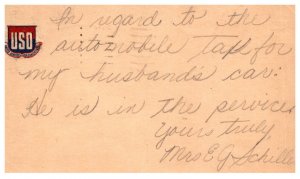 In regard to the
USO
automobile tax for
my husband's car.
He is in the service
Yours truly
Mrs E G Schille